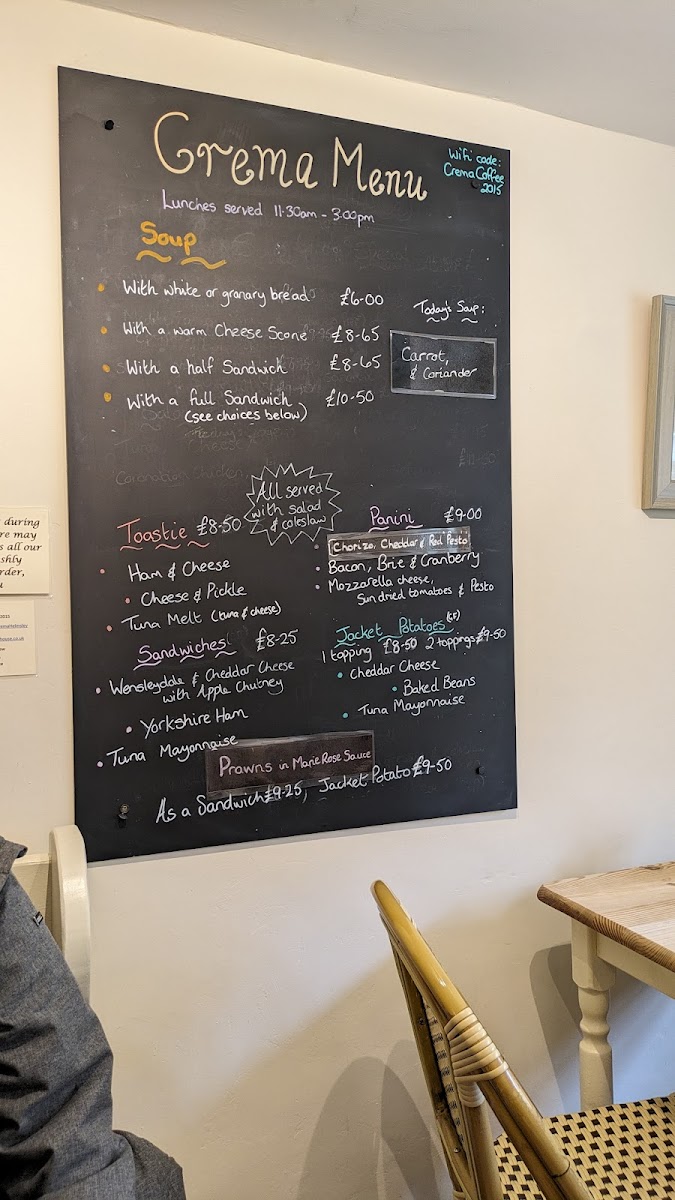 Crema Menu
Wifi code:
Crema Coffee
2015
Lunches served 11.30am - 3.00pm
Soup
With white or granary bread £6-00
With a warm Cheese Scone £8-65
With a half Sandwich £8-65
With a full Sandwich £10-50
(see choices below)
Today's Soup:
Carrot,
& Coriander
All served
with salad
& coleslaw
Toastie £8-50
Ham & Cheese
Cheese & Pickle
Tuna Melt (tuna & cheese)
Sandwiches £8-25
Wensleydale & Cheddar Cheese
with Apple Chutney
Yorkshire Ham
Tuna Mayonnaise
Panini £9-00
Chorizo, Cheddar & Red Pesto
Bacon, Brie & Cranberry
Mozzarella cheese,
Sun dried tomatoes & Pesto
Jacket Potatoes (GF)
1 topping £8-50 2 toppings £9-50
Cheddar Cheese
Baked Beans
Tuna Mayonnaise
Prawns in Marie Rose Sauce
As a Sandwich £9-25, Jacket Potato £9-50
during
re may
s all our
shly
rder,